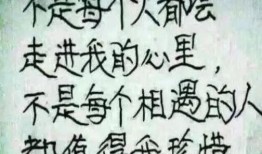 不是每个人都会
走进我的心里，
不是每个相遇的人
都值得我珍惜